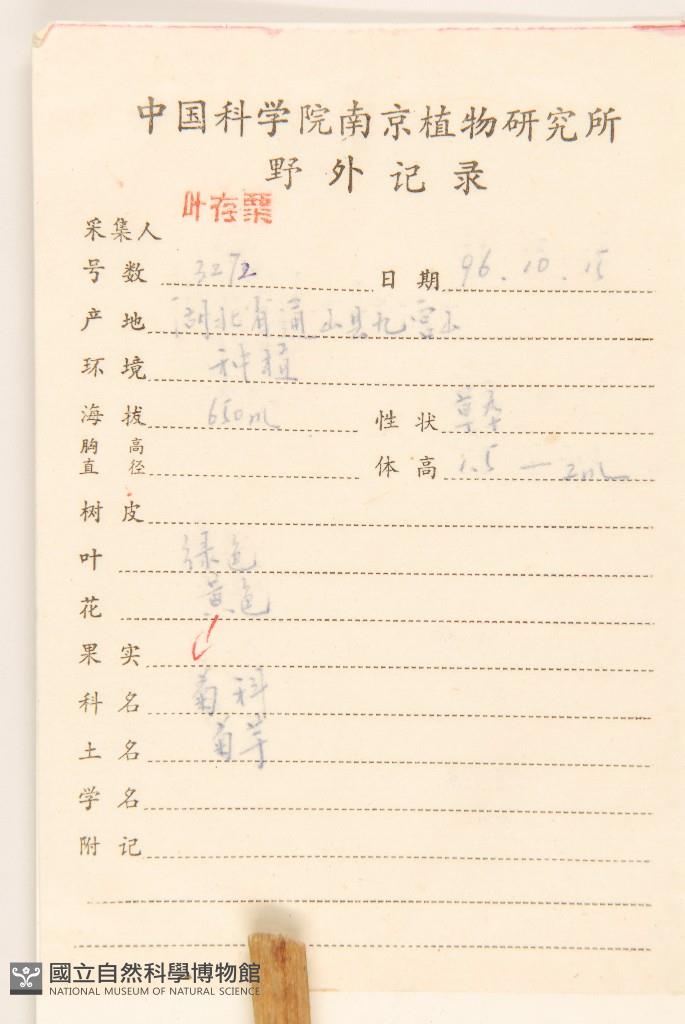 中国科学院南京植物研究所
野外记录
叶存粟
采集人
号数 3272 日期 96.10.15
产地 湖北省通山县九宫山
环境 种植
海拔 650m 性状 草本
胸高直径 体高 1.5—2m
树皮
叶 绿色
花 黄色
果实
科名 菊科
土名 菊芋
学名
附记
國立自然科學博物館
NATIONAL MUSEUM OF NATURAL SCIENCE